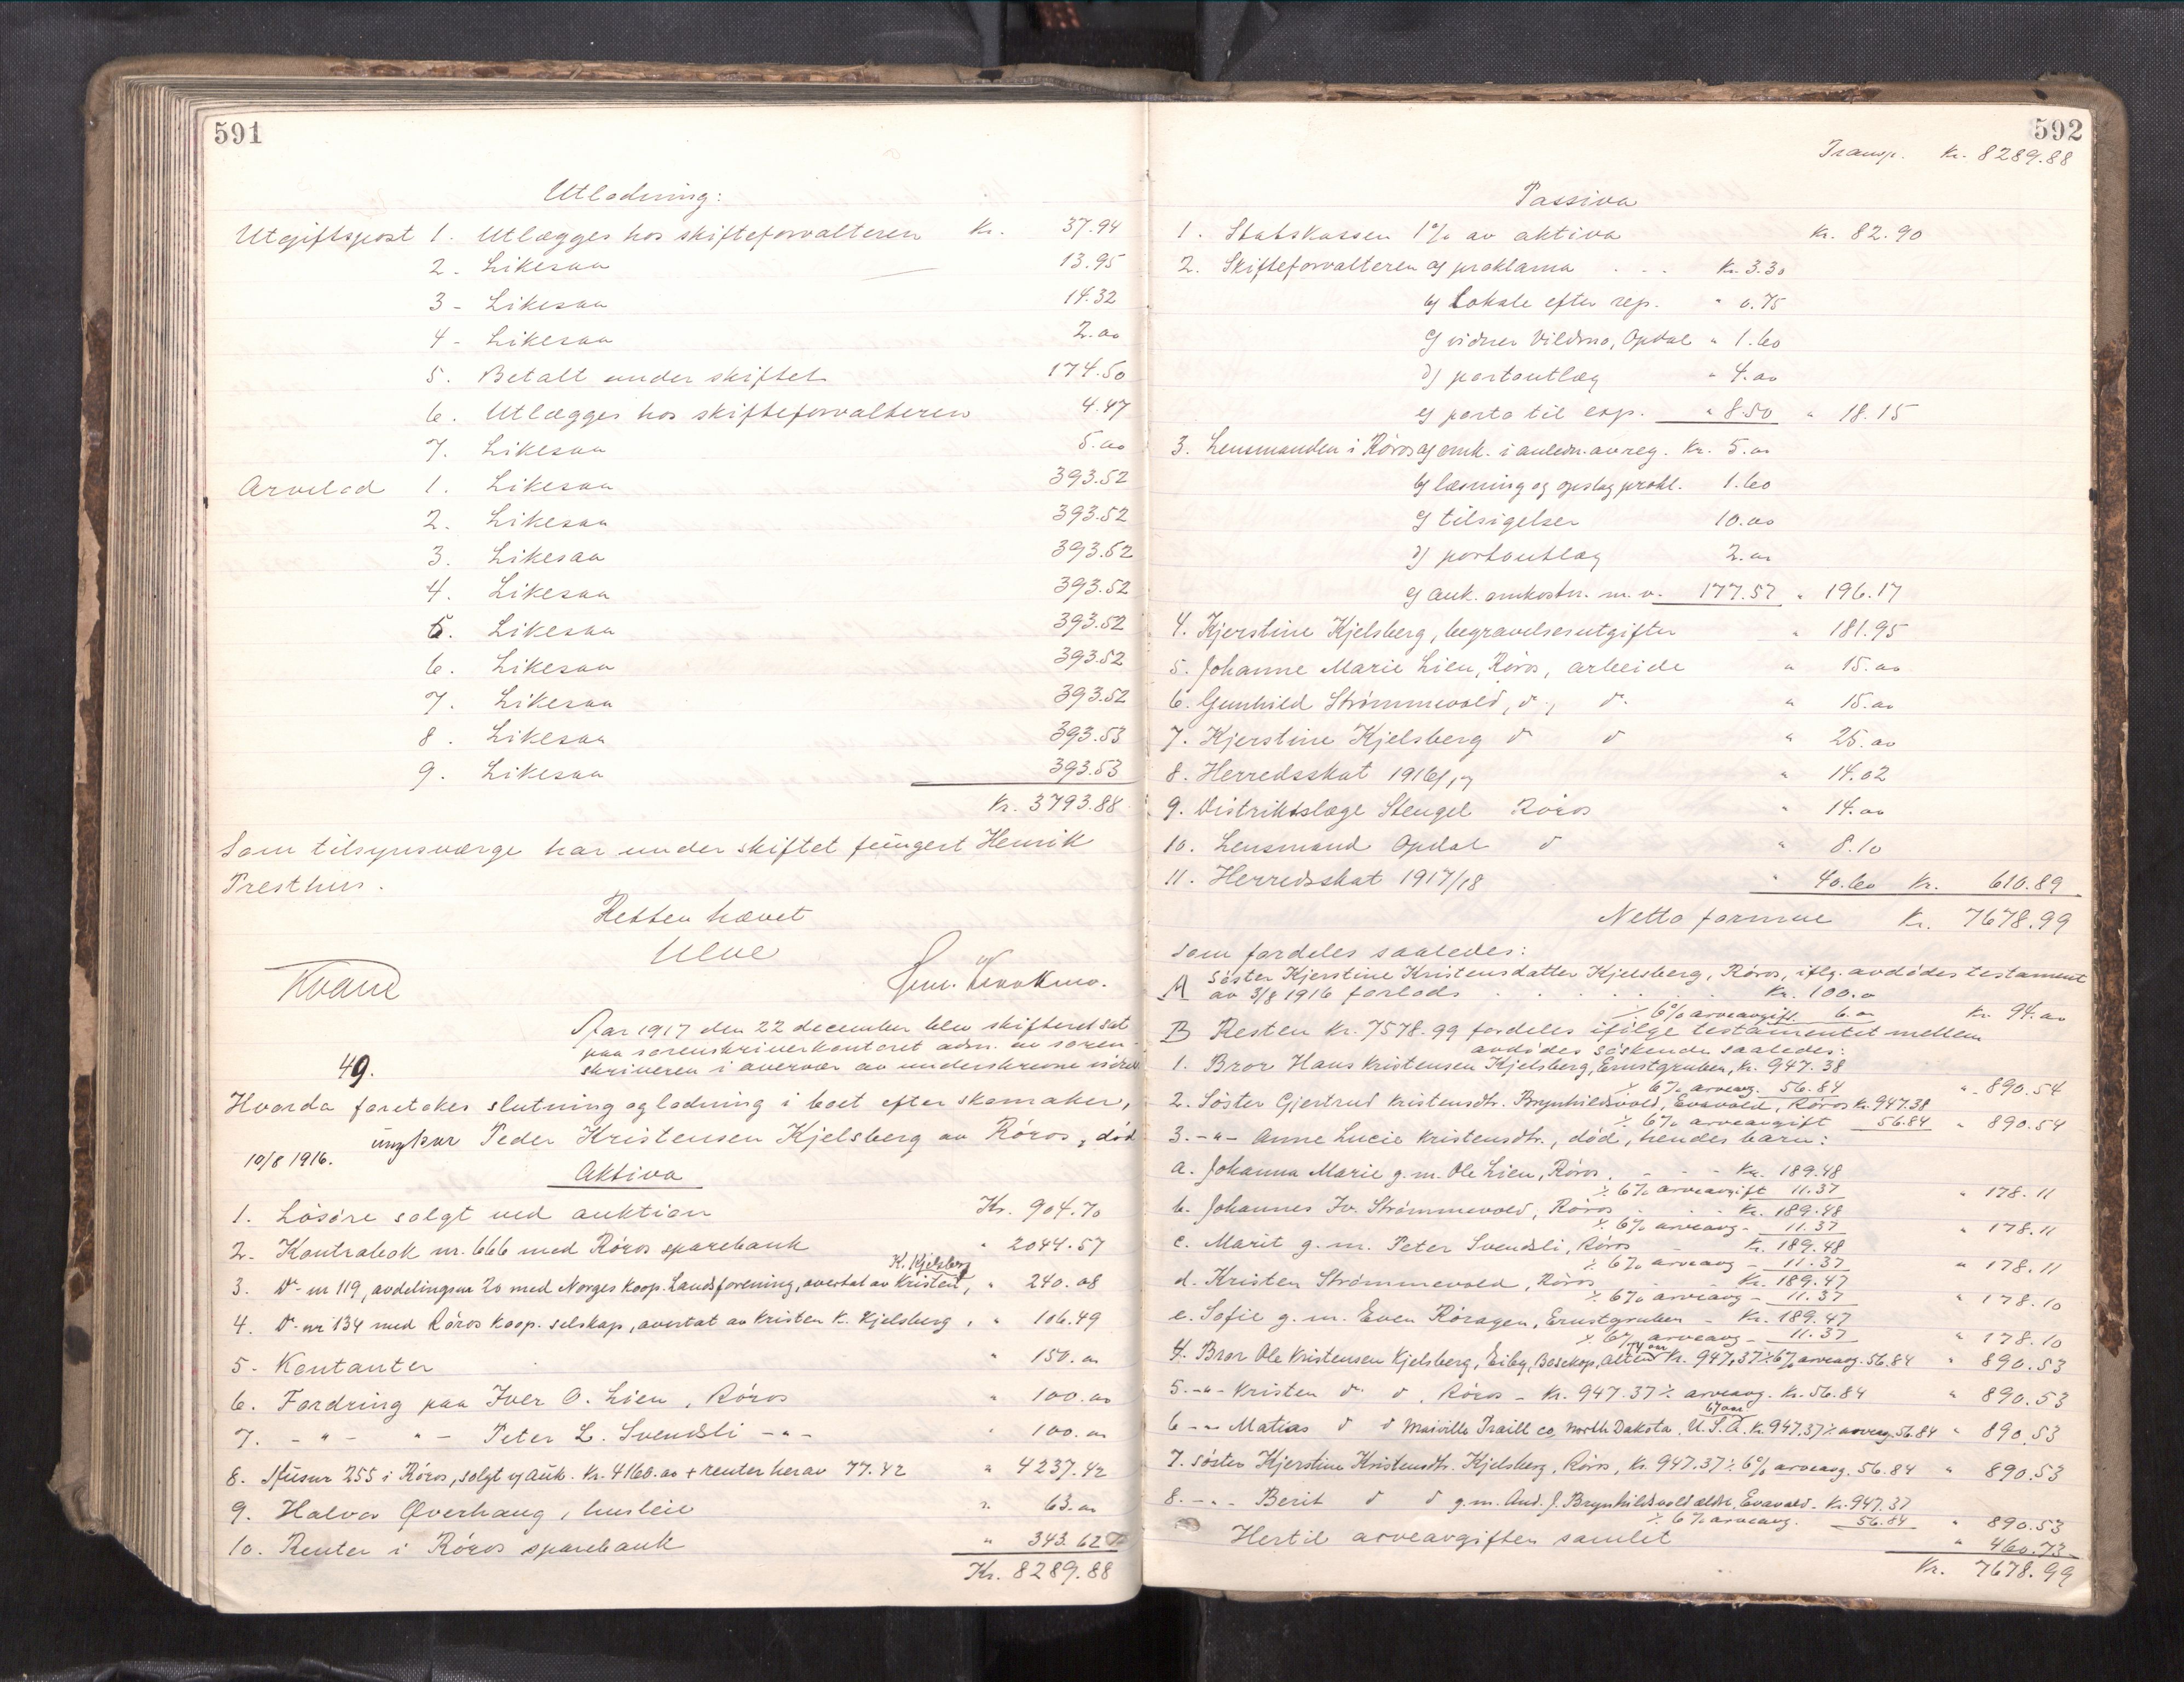 591
Utlodning:
Utgiftspost 1. Utlægges hos skifteforvalteren Kr. 37.94
2. Likesaa 13.95
3 - Likesaa 14.32
4 - Likesaa 2.00
5. Betalt under skiftet 174.50
6. Utlægges hos skifteforvalteren 4.47
7. Likesaa 5.00
Arvelod 1. Likesaa 393.52
2. Likesaa 393.52
3. Likesaa 393.52
4. Likesaa 393.52
5. Likesaa 393.52
6. Likesaa 393.52
7. Likesaa 393.52
8. Likesaa 393.53
9. Likesaa 393.53
Kr. 3793.88
Som tilsynsværge har under skiftet fungert Henrik
Presthus.
Retten hævet
Ulve
Kvand
Aar 1917 den 22 december blev skifteret sat
paa sorenskriverkontoret adm. av soren-
skriveren i overvær av underskrevne vidner
49.
Hvorda foretokes slutning og lodning i boet efter skomaker,
ungkar Peder Kristensen Kjelsberg av Röros, död
10/8 1916.
Aktiva
1. Lösöre solgt ved auktion Kr. 904.70
2. Kontrabok nr. 666 med Röros sparebank " 2044.57
K. Kjelsberg
3. Do nr 119, avdelingsnr 20 med Norges koop. Landsforening, overtat av Kristen, " 240.08
4. Do nr 134 med Röros koop. selskap, overtat av Kristen K. Kjelsberg, " 106.49
5. Kontanter " 150.00
6. Fordring paa Iver O. Lien, Röros " 100.00
7. - " - " - Peter L. Svendsli - " - " 100.00
8. Husnr 255 i Röros, solgt v/ auk. Kr. 4160.00 + renter herav 77.42 " 4237.42
9. Halvor Øverhaug, husleie " 63.00
10. Renter i Röros sparebank " 343.62
Kr. 8289.88
592
Transp. Kr. 8289.88
Passiva
1. Statskassen 1% av aktiva Kr. 82.90
2. Skifteforvalteren a) proklama . . . Kr. 3.30
b) Lokale efter rep. " 0.75
c) vidner Vildmo, Opdal " 1.60
d) portoutlæg " 4.00
e) porto til exp. " 8.50 " 18.15
3. Lensmanden i Röros a) omk. i anledn. av reg. Kr. 5.00
b) læsning og opslag prokl. 1.60
c) tilsigelser 10.00
d) portoutlæg 2.00
e) auk. omkostn. m.v. 177.57 " 196.17
4. Kjerstine Kjelsberg, begravelsesutgifter " 181.95
5. Johanne Marie Lien, Röros, arbeide " 15.00
6. Gunhild Strömmevold, do, do " 15.00
7. Kjerstine Kjelsberg do do " 25.00
8. Herredsskat 1916/17 " 14.02
9. Distriktslæge Stengel Röros " 14.00
10. Lensmand Opdal do " 8.10
11. Herredsskat 1917/18 " 40.60 Kr. 610.89
Netto formue Kr. 7678.99
som fordeles saaledes:
A Söster Kjerstine Kristensdatter Kjelsberg, Röros, iflg. avdödes testament
av 3/8 1916 forlods . . . . . Kr. 100.00
÷ 6% arveavgift 6.00 Kr. 94.00
B Resten Kr. 7578.99 fordeles ifölge testamentet mellem
avdödes söskende saaledes:
1. Bror Hans Kristensen Kjelsberg, Ernstgruben, Kr. 947.38
÷ 6% arveavg. 56.84 " 890.54
2. Söster Gjertrud Kristensdtr. Brynhildsvold, Evavold, Röros Kr. 947.38
÷ 6% arveavgift 56.84 " 890.54
3. - " - Anne Lucie Kristensdtr., död, hendes barn:
a. Johanna Marie g. m. Ole Lien, Röros . - - - Kr. 189.48
÷ 6% arveavgift 11.37 " 178.11
b. Johannes Iv. Strömmevold, Röros - - Kr. 189.48
÷ 6% arveavg - 11.37 " 178.11
c. Marit g. m. Peter Svendsli, Röros - Kr. 189.48
÷ 6% arveavg - 11.37 " 178.11
d. Kristen Strömmevold, Röros - - Kr. 189.47
÷ 6% arveavg - 11.37 " 178.10
e. Sofie g. m. Even Röragen, Ernstgruben - Kr. 189.47
÷ 6% arveavg - 11.37 " 178.10
4. Bror Ole Kristensen Kjelsberg, Eiby, Bosekop, Alten Kr. 947.37 ÷ 6% arveavg. 56.84 " 890.53
5. - " - Kristen do do, Röros - Kr. 947.37 ÷ arveavg. Kr. 56.84 " 890.53
67 aar
6 - " - Matias do do Maiville Traill co, North Dakota, U.S.A. Kr. 947.37 ÷ arveavg. 56.84 " 890.53
7. söster Kjerstine Kristensdtr. Kjelsberg, Röros, Kr. 947.37 ÷ 6% arveavg. 56.84 " 890.53
8. - " - Berit do do g. m. And. J. Brynhildsvold ældre, Evavold - Kr. 947.37
÷ 6% arveavg. 56.84 " 890.53
Hertil arveavgiften samlet " 460.73
Kr. 7678.99